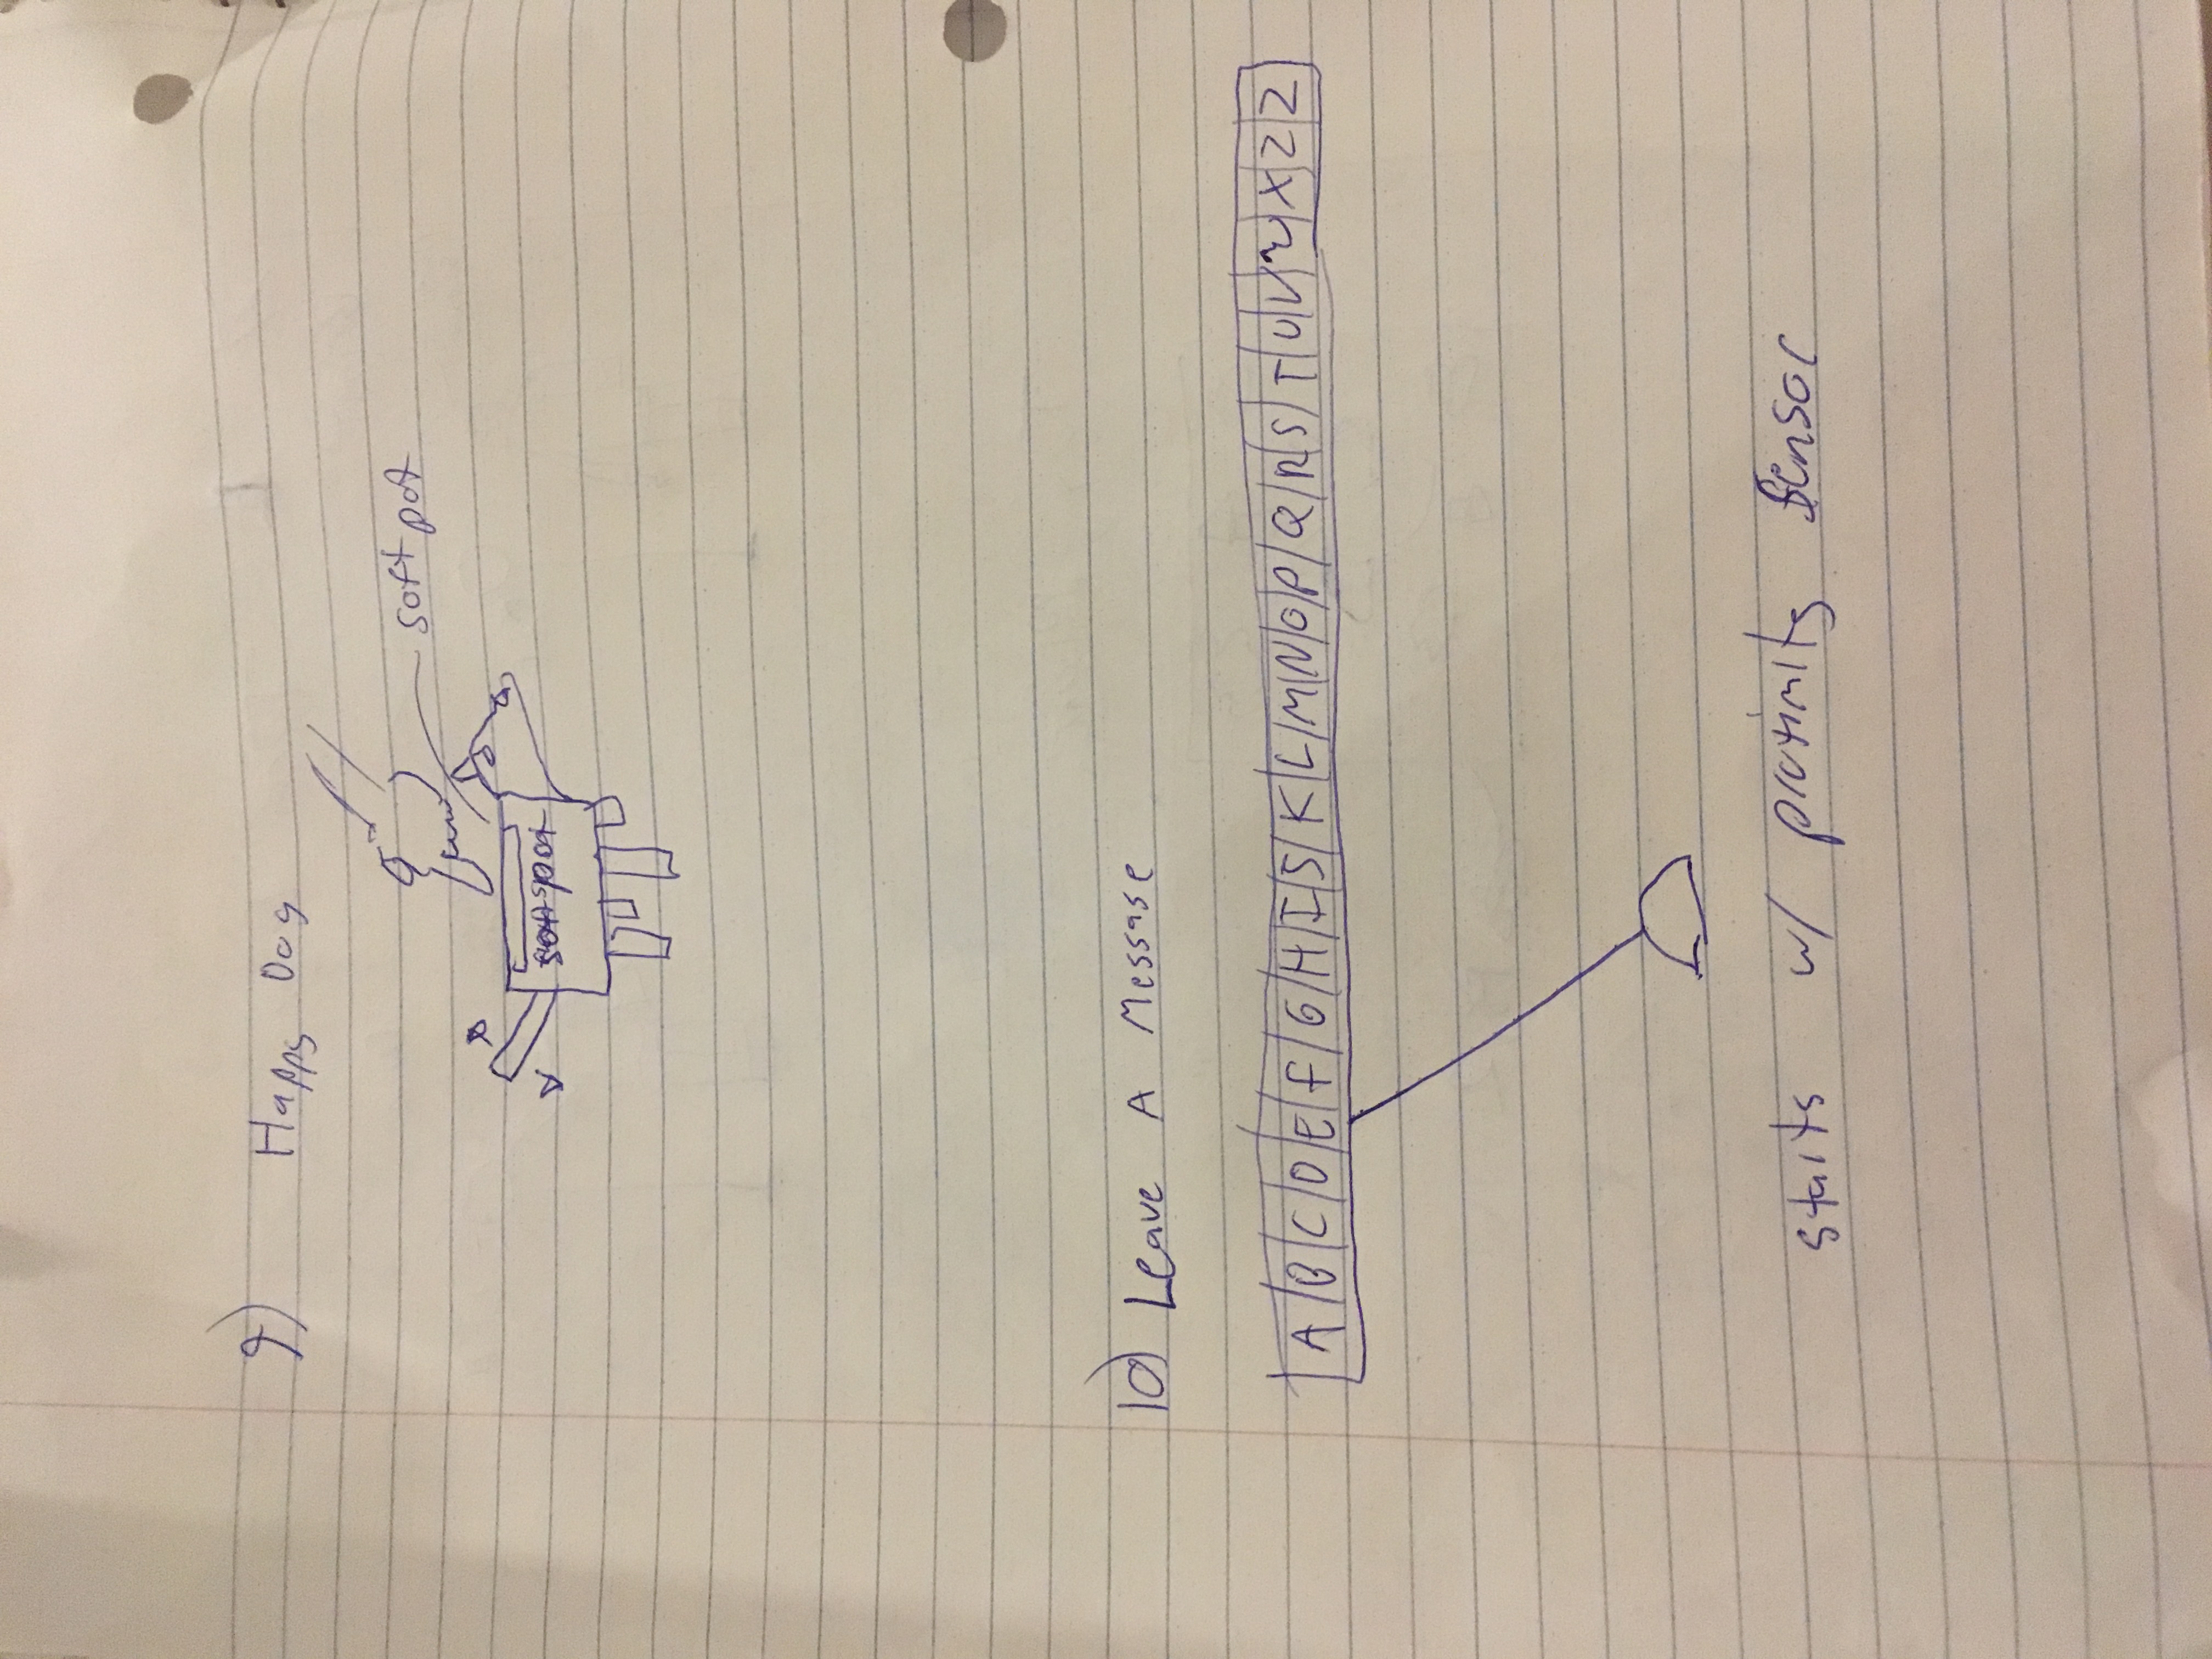 9) Happy Dog
soft pot
soft spot
10) Leave A Message
A B C D E F G H I J K L M N O P Q R S T U V W X Z Z
starts w/ proximity sensor